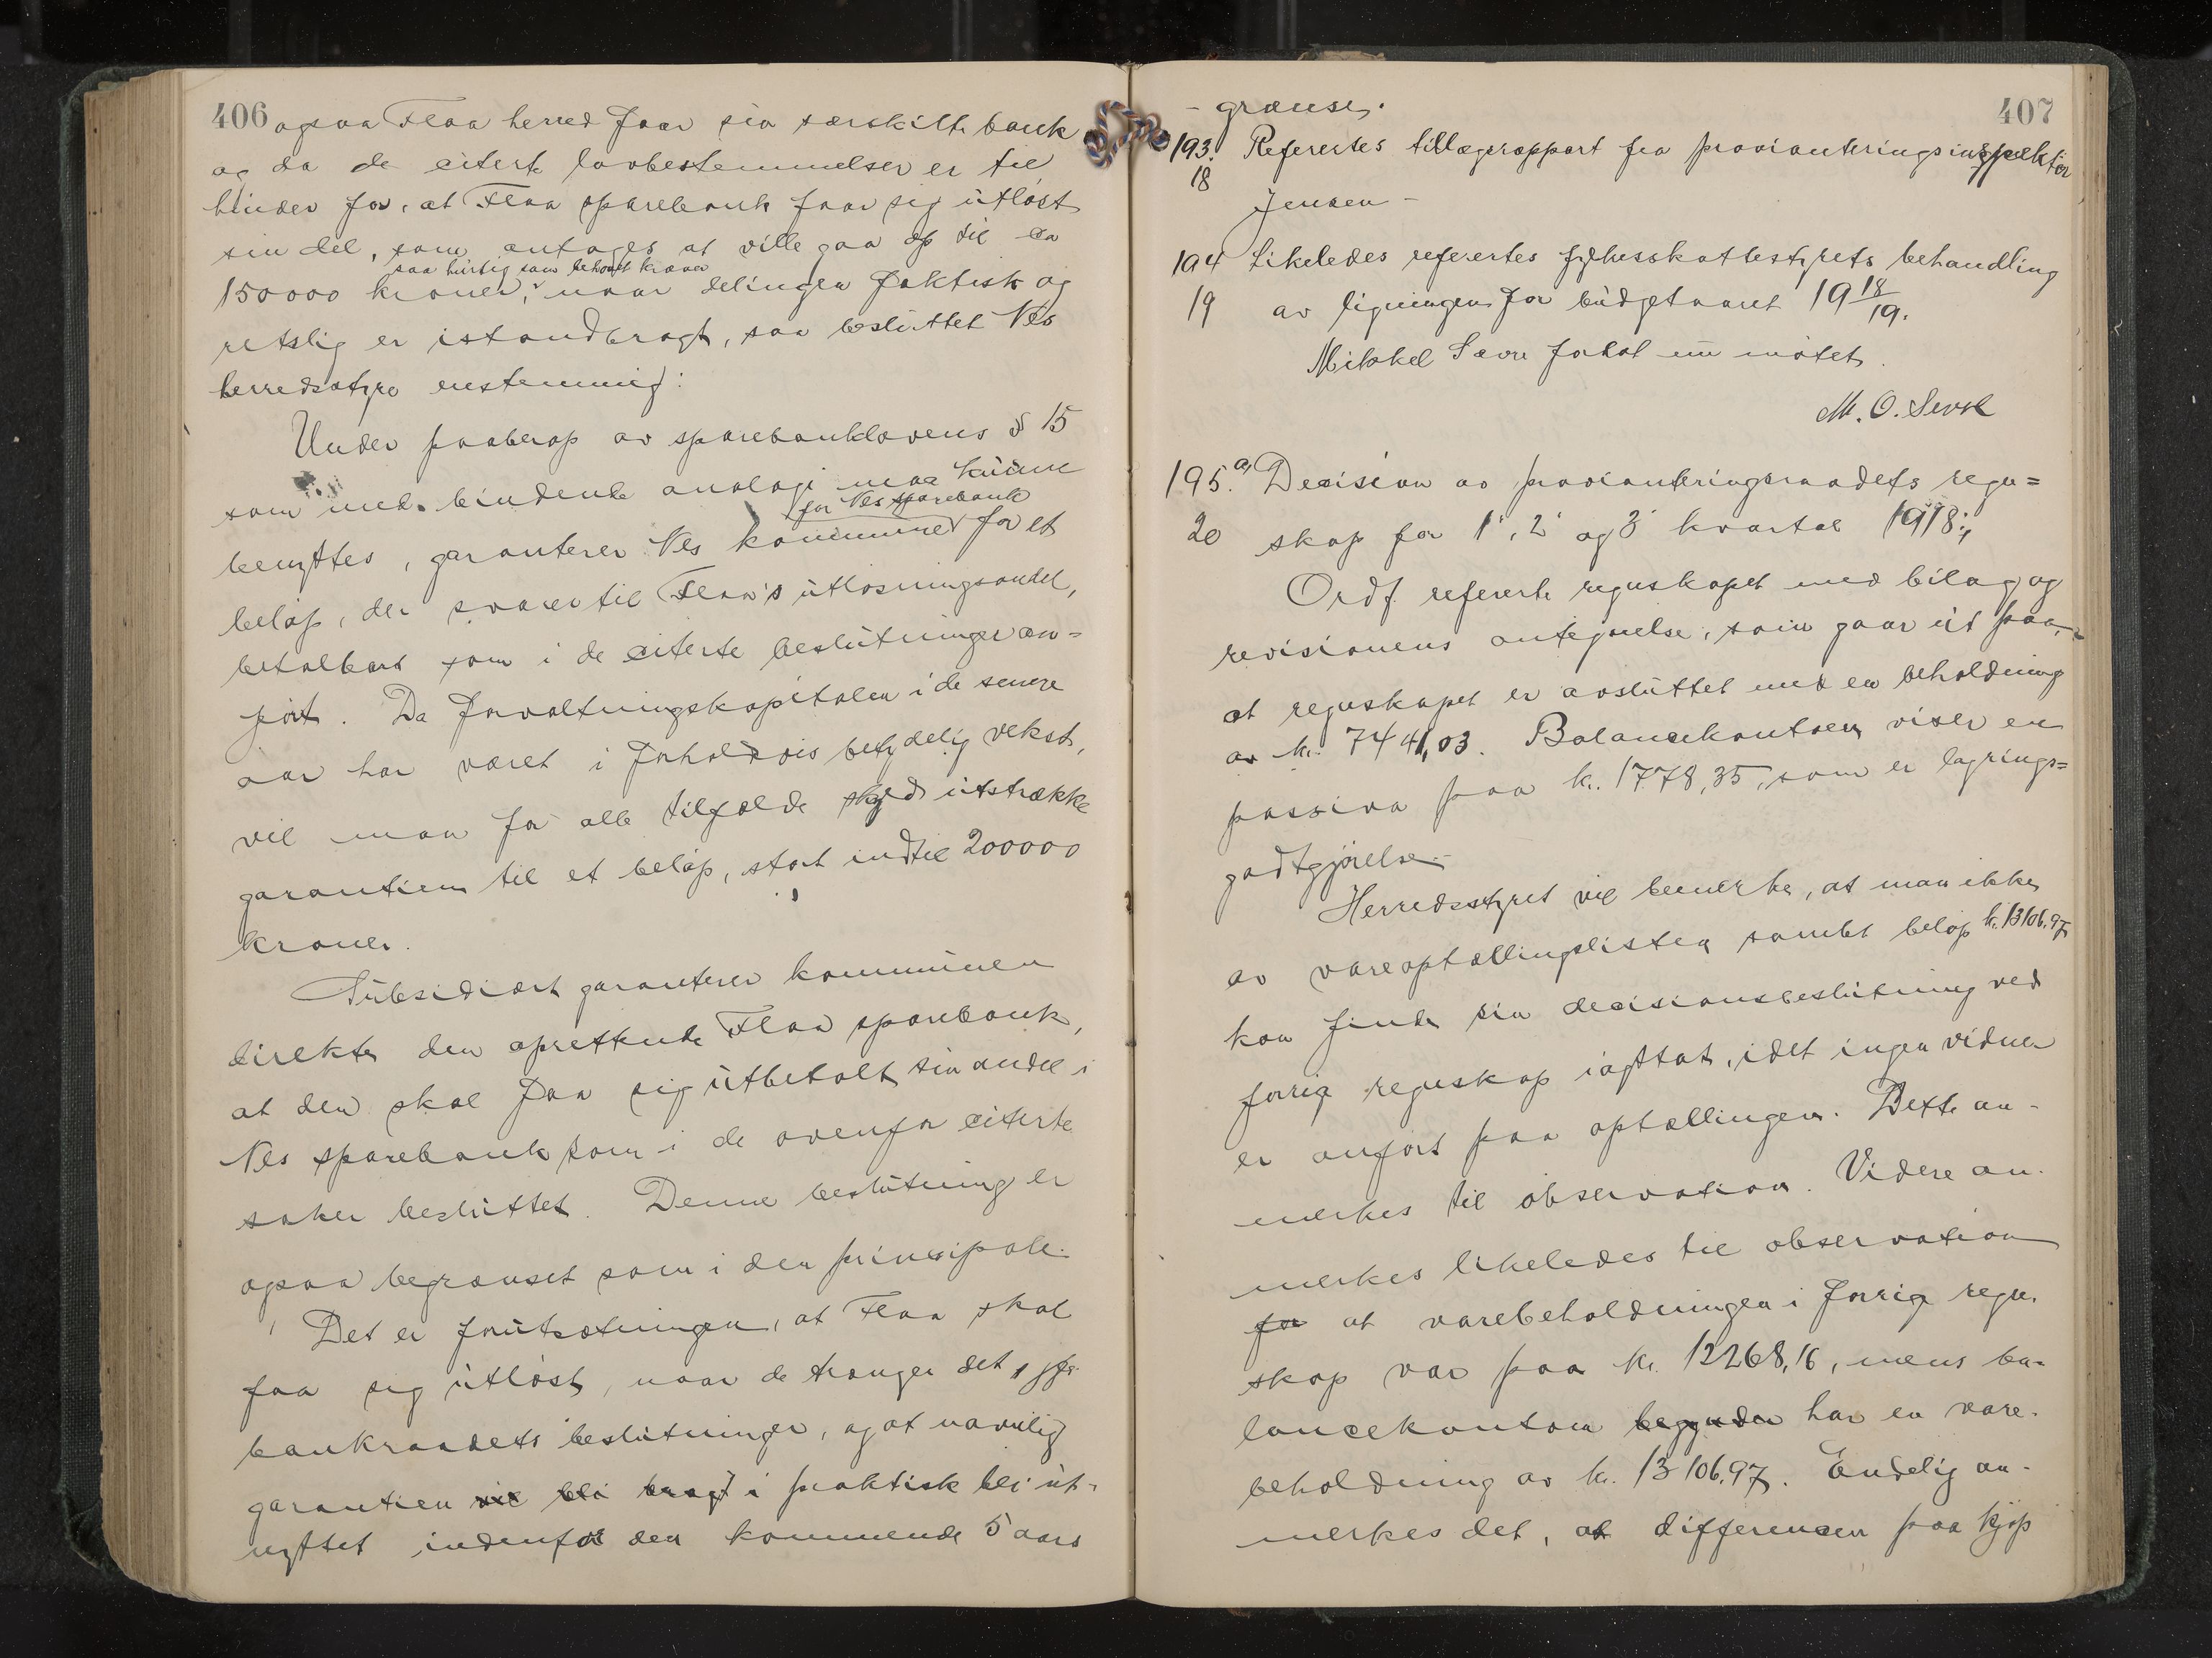 406
ogsaa Flaa herred faar sin særskilte bank
og da de citerte lovbestemmelser er til
hinder for, at Flaa sparebank faar sig utløst
sin del, som antages at ville gaa op til ca
saa hurtig som behovet kræver
150000 kroner, naar delingen faktisk og
retslig er istandbragt, saa besluttet Nes
herredsstyre enstemmig:
Under paaberop av sparebanklovens § 15
som med bindende analogi maa kunne
for Nes sparebank
benyttes, garanterer Nes kommune for et
beløp, der svarer til Flaa's utløsningsandel,
betalbart som i de citerte beslutninger an=
ført. Da forvaltningskapitalen i de senere
aar har været i forholdsvis betydelig vekst,
vil man for alle tilfælde skyld utstrække
garantien til et beløp, stort indtil 200000
kroner.
Subsidiært garanterer kommunen
direkte den oprettende Flaa sparebank,
at den skal faa sig utbetalt sin andel i
Nes sparebank som i de ovenfor citerte
saker besluttet. Denne beslutning er
ogsaa begrænset som i den principale.
Det er forutsætningen, at Flaa skal
faa sig utløst, naar de trænger det, jfr.
bankraadets beslutninger, og at navnlig
garantien vil bli bragt i praktisk bli ut-
nyttet indenfor den kommende 5 aars
407
- grænse.
193. Referertes tillægsrapport fra provianteringsinspektør
18
Jensen -
194 Likeledes refertes fylkesskattestyrets behandling
19 av ligningen for budgetaaret 19 18/19.
Mikkel Sævre forlot nu møtet.
M. O. Sevre
195. a, Decision av provianteringsraadets regn=
20 skap for 1', 2' og 3' kvartal 1918:,
Ordf. refererte regnskapet med bilag og
revisionens antegnelse, som gaar ut paa,
at regnskapet er avsluttet med en beholdning
av kr. 7441,03. Balancekontoen viser en
passiva paa kr. 1778,35, som er lagrings=
godtgjørelse.
Herredsstyret vil bemerke, at man ikke
av vareoptællingslisten samlet beløp kr. 13106.97
kan finde sin decisionsbeslutning ved
forrige regnskap iagttat, idet ingen vidner
er anført paa optællingen. Dette an-
merkes til observation. Videre an-
merkes likeledes til observation
for at varebeholdningen i forrige regn-
skap var paa kr. 12268,16, mens ba-
lancekontoen begynder har en vare-
beholdning av kr. 13106.97. Endelig an-
merkes det, at differencen paa kjøp